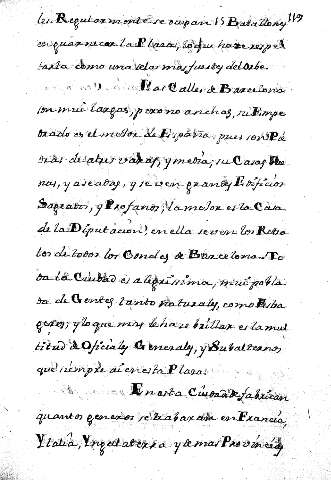 les. Regularmente se ocupan 15 Batallones 119
en guarnecer la Plaza, lo que hace respe
tarla como una de las mas fuertes del Orbe.
Las Calles de Barcelona
son mui largas, pero no anchas, su Empe
drado es el mejor de España, pues son Pie
dras de a tres varas, y media; sus Casas bue
nas, y aseadas, y se ven grandes Edificios
Sagrados, y Profanos; la mejor es la Casa
de la Diputacion, en ella se ven los Retra
tos de todos los Condes de Barcelona. To
da la Ciudad es alegrissima, mui pobla
da de Gentes tanto naturales, como Estra
geros; y lo que mas le hace brillar es la mul
titud de Oficiales Generales, y Subalternos,
que siempre ai en esta Plaza.
En esta Ciudad se fabrican
quantos generos se trabaxan en Francia,
Ytalia, Ynglaterra y demas Provincias